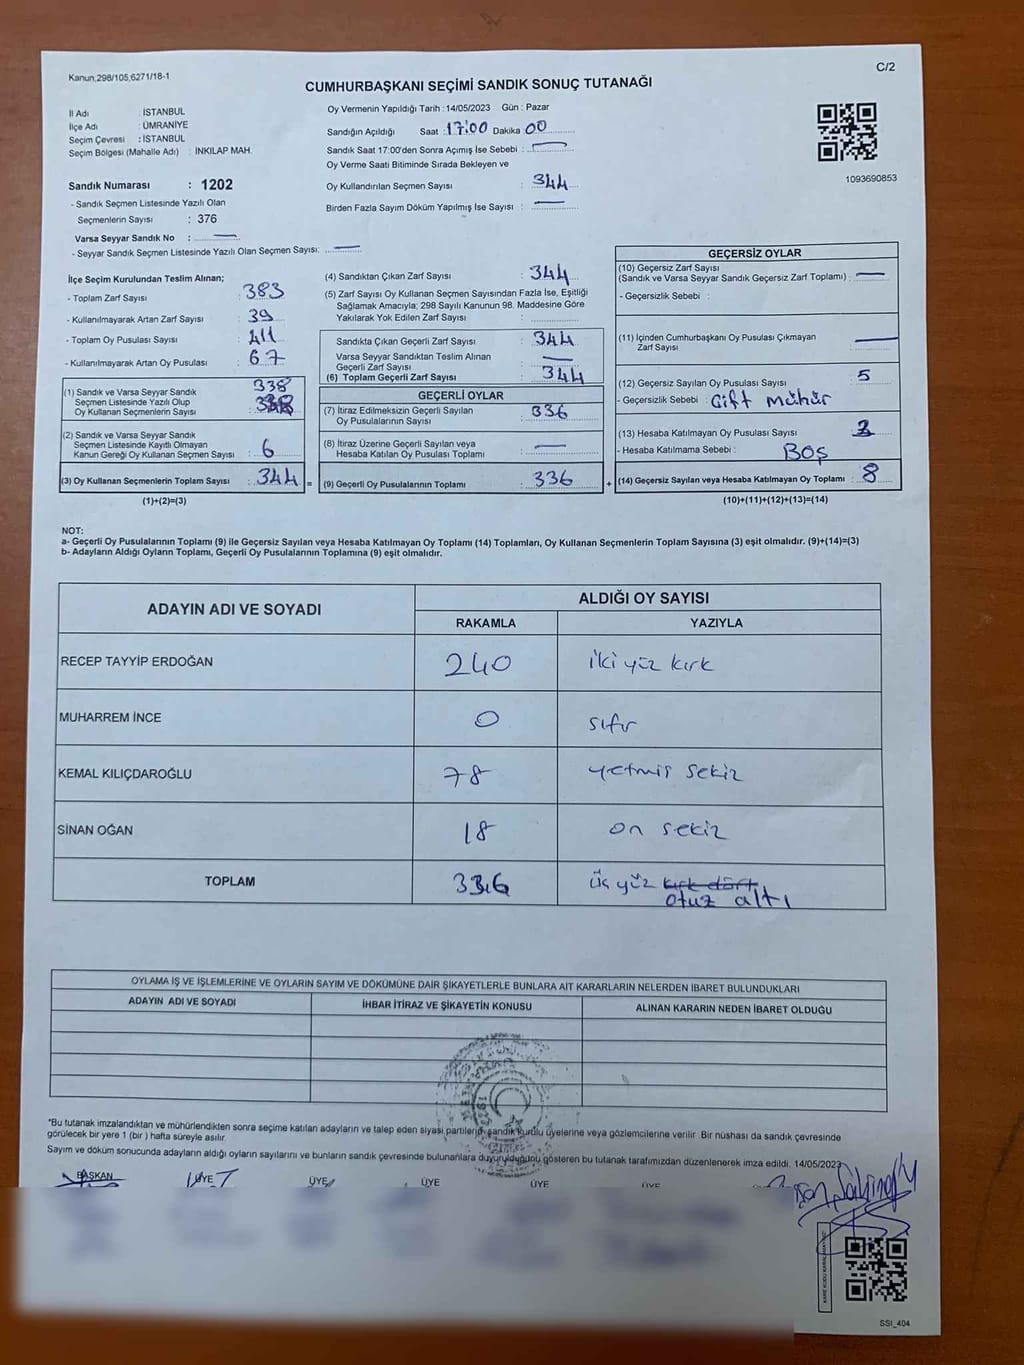 Kanun,298/105,6271/18-1
C/2
CUMHURBAŞKANI SEÇİMİ SANDIK SONUÇ TUTANAĞI
İl Adı : İSTANBUL
İlçe Adı : ÜMRANİYE
Seçim Çevresi : İSTANBUL
Seçim Bölgesi (Mahalle Adı) : İNKILAP MAH.
Sandık Numarası : 1202
- Sandık Seçmen Listesinde Yazılı Olan
Seçmenlerin Sayısı : 376
Varsa Seyyar Sandık No :
- Seyyar Sandık Seçmen Listesinde Yazılı Olan Seçmen Sayısı:
Oy Vermenin Yapıldığı Tarih : 14/05/2023 Gün : Pazar
Sandığın Açıldığı Saat : 17:00 Dakika 00
Sandık Saat 17:00'den Sonra Açımış İse Sebebi :
Oy Verme Saati Bitiminde Sırada Bekleyen ve
Oy Kullandırılan Seçmen Sayısı : 344
Birden Fazla Sayım Döküm Yapılmış İse Sayısı :
1093690853
İlçe Seçim Kurulundan Teslim Alınan;
- Toplam Zarf Sayısı : 383
- Kullanılmayarak Artan Zarf Sayısı : 39
- Toplam Oy Pusulası Sayısı : 411
- Kullanılmayarak Artan Oy Pusulası : 67
338
(1) Sandık ve Varsa Seyyar Sandık
Seçmen Listesinde Yazılı Olup
Oy Kullanan Seçmenlerin Sayısı :
(2) Sandık ve Varsa Seyyar Sandık
Seçmen Listesinde Kayıtlı Olmayan
Kanun Gereği Oy Kullanan Seçmen Sayısı : 6
(3) Oy Kullanan Seçmenlerin Toplam Sayısı : 344
(1)+(2)=(3)
=
(4) Sandıktan Çıkan Zarf Sayısı : 344
(5) Zarf Sayısı Oy Kullanan Seçmen Sayısından Fazla İse, Eşitliği
Sağlamak Amacıyla; 298 Sayılı Kanunun 98. Maddesine Göre
Yakılarak Yok Edilen Zarf Sayısı :
Sandıkta Çıkan Geçerli Zarf Sayısı : 344
Varsa Seyyar Sandıktan Teslim Alınan
Geçerli Zarf Sayısı
(6) Toplam Geçerli Zarf Sayısı : 344
GEÇERLİ OYLAR
(7) İtiraz Edilmeksizin Geçerli Sayılan
Oy Pusulalarının Sayısı : 336
(8) İtiraz Üzerine Geçerli Sayılan veya
Hesaba Katılan Oy Pusulası Toplamı :
(9) Geçerli Oy Pusulalarının Toplamı : 336
+
GEÇERSİZ OYLAR
(10) Geçersiz Zarf Sayısı
(Sandık ve Varsa Seyyar Sandık Geçersiz Zarf Toplamı) :
- Geçersizlik Sebebi :
(11) İçinden Cumhurbaşkanı Oy Pusulası Çıkmayan
Zarf Sayısı :
(12) Geçersiz Sayılan Oy Pusulası Sayısı : 5
- Geçersizlik Sebebi : Çift mühür
(13) Hesaba Katılmayan Oy Pusulası Sayısı : 3
- Hesaba Katılmama Sebebi : Boş
(14) Geçersiz Sayılan veya Hesaba Katılmayan Oy Toplamı : 8
(10)+(11)+(12)+(13)=(14)
NOT:
a- Geçerli Oy Pusulalarının Toplamı (9) ile Geçersiz Sayılan veya Hesaba Katılmayan Oy Toplamı (14) Toplamları, Oy Kullanan Seçmenlerin Toplam Sayısına (3) eşit olmalıdır. (9)+(14)=(3)
b- Adayların Aldığı Oyların Toplamı, Geçerli Oy Pusulalarının Toplamına (9) eşit olmalıdır.
ADAYIN ADI VE SOYADI
ALDIĞI OY SAYISI
RAKAMLA YAZIYLA
RECEP TAYYİP ERDOĞAN 240 iki yüz kırk
MUHARREM İNCE 0 sıfır
KEMAL KILIÇDAROĞLU 78 yetmiş sekiz
SİNAN OĞAN 18 on sekiz
TOPLAM 336 üç yüz kırk dört
otuz altı
OYLAMA İŞ VE İŞLEMLERİNE VE OYLARIN SAYIM VE DÖKÜMÜNE DAİR ŞİKAYETLERLE BUNLARA AİT KARARLARIN NELERDEN İBARET BULUNDUKLARI
ADAYIN ADI VE SOYADI İHBAR İTİRAZ VE ŞİKAYETİN KONUSU ALINAN KARARIN NEDEN İBARET OLDUĞU
*Bu tutanak imzalandıktan ve mühürlendikten sonra seçime katılan adayların ve talep eden siyasi partilerin sandık kurulu üyelerine veya gözlemcilerine verilir. Bir nüshası da sandık çevresinde
görülecek bir yere 1 (bir ) hafta süreyle asılır.
Sayım ve döküm sonucunda adayların aldığı oyların sayılarını ve bunların sandık çevresinde bulunanlara duyurulduğunu gösteren bu tutanak tarafımızdan düzenlenerek imza edildi. 14/05/2023
BAŞKAN ÜYE ÜYE ÜYE ÜYE ÜYE
SSI_404